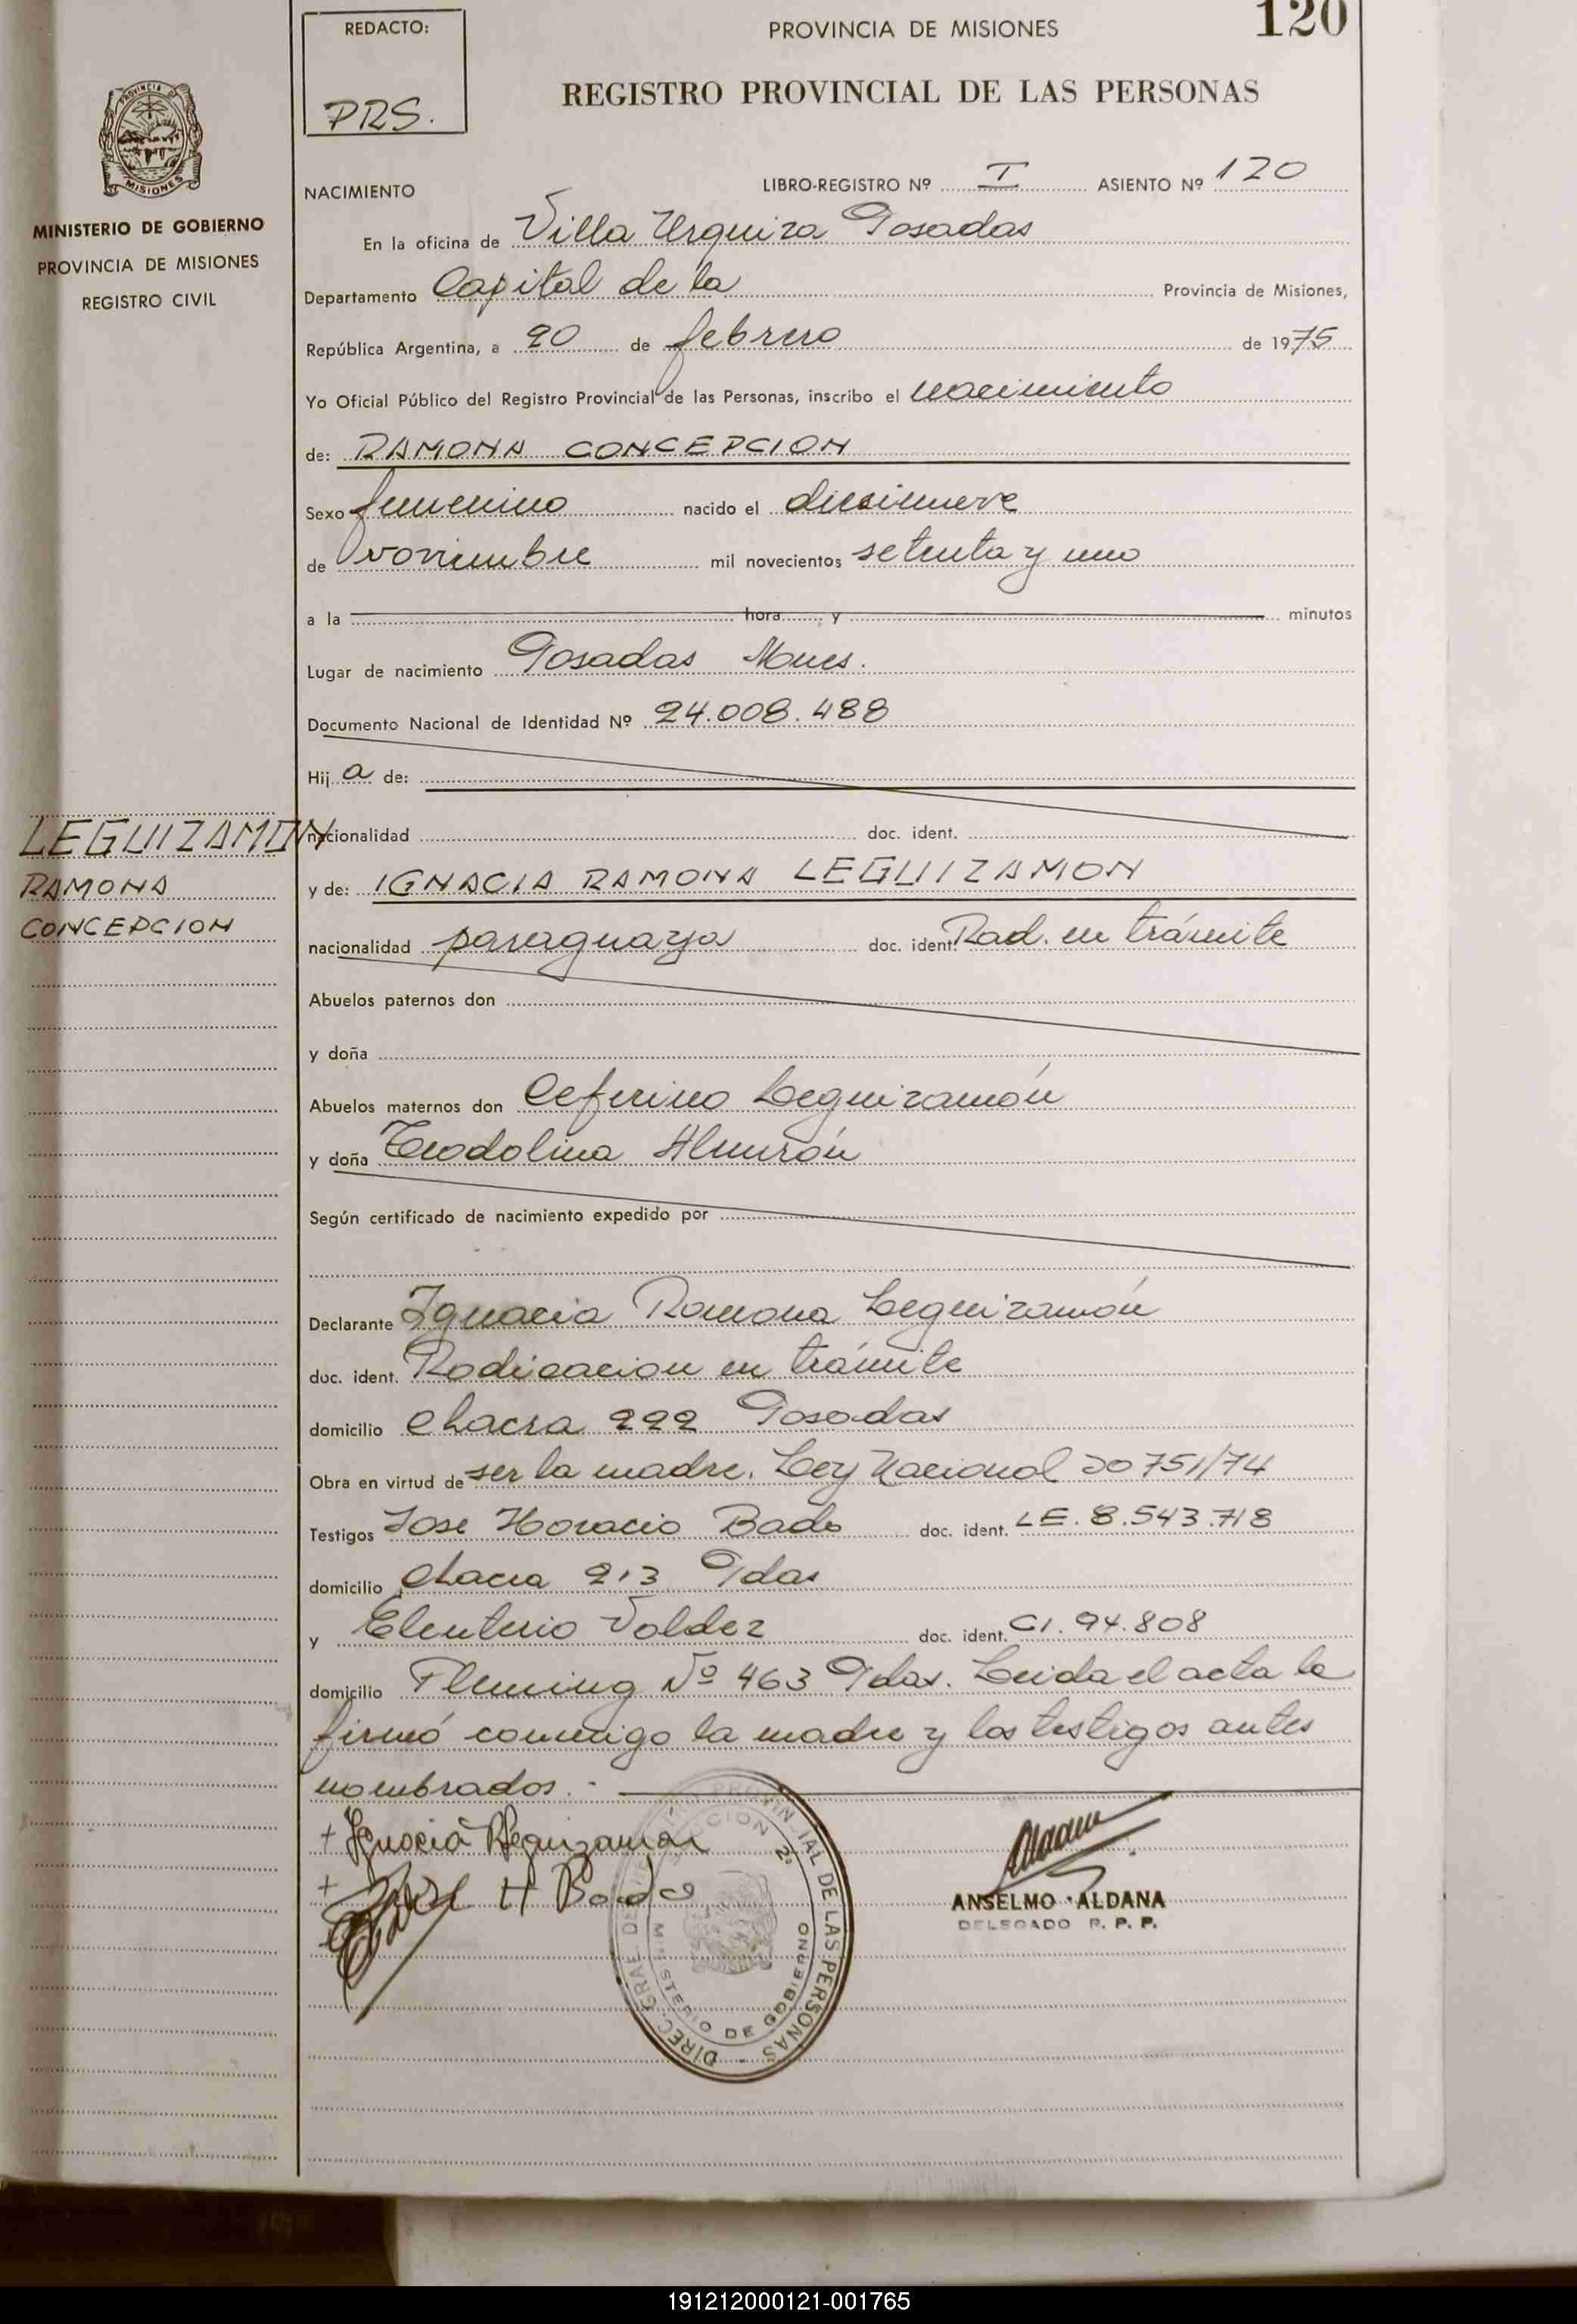 120
REDACTO:
PRS.
PROVINCIA DE MISIONES
REGISTRO PROVINCIAL DE LAS PERSONAS
PROVINCIA DE
MISIONES
MINISTERIO DE GOBIERNO
PROVINCIA DE MISIONES
REGISTRO CIVIL
NACIMIENTO
LIBRO-REGISTRO Nº I ASIENTO Nº 120
En la oficina de Villa Urquiza Posadas
Departamento Capital de la Provincia de Misiones,
República Argentina, a 20 de febrero de 1975
Yo Oficial Público del Registro Provincial de las Personas, inscribo el nacimiento
de: RAMONA CONCEPCION
Sexo femenino nacido el diesinueve
de noviembre mil novecientos setenta y uno
a la hora y minutos
Lugar de nacimiento Posadas Mnes.
Documento Nacional de Identidad Nº 24.008.488
Hija de:
nacionalidad doc. ident.
LEGUIZAMON
RAMONA
CONCEPCION
y de: IGNACIA RAMONA LEGUIZAMON
nacionalidad paraguaya doc. ident. Rad. en trámite
Abuelos paternos don
y doña
Abuelos maternos don Ceferino Leguizamón
y doña Teodolina Almirón
Según certificado de nacimiento expedido por
Declarante Ignacia Ramona Leguizamón
doc. ident. Radicacion en trámite
domicilio Chacra 222 Posadas
Obra en virtud de ser la madre. Ley Nacional 20751/74
Testigos Jose Horacio Bado doc. ident. LE. 8.543.718
domicilio Chacra 213 Pdas
y Eleuterio Valdez doc. ident. CI. 94.808
domicilio Fleming Nº 463 Pdas. Leida el acta la
firmó conmigo la madre y los testigos antes
nombrados.-
+ Ignacia Leguizamón
+ José H Bado
DIREC. GRAL DE PROVINCIAL DE LAS PERSONAS
SECCION 2ª
MINISTERIO DE GOBIERNO
Aldana
ANSELMO ALDANA
DELEGADO R. P. P.
191212000121-001765